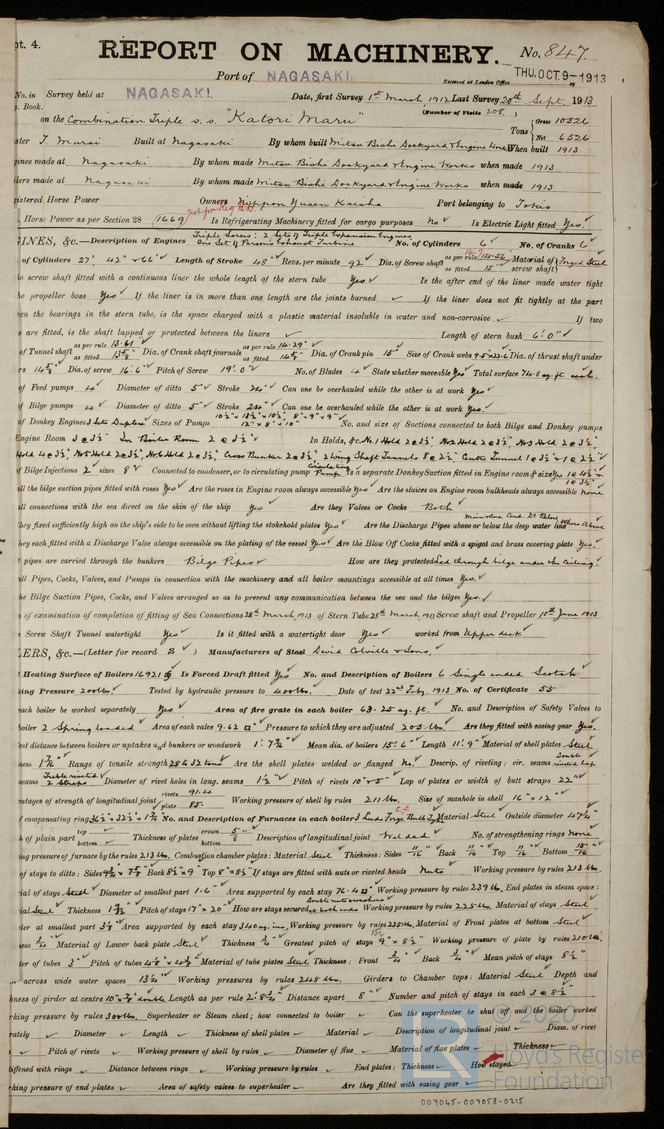 pt. 4. REPORT ON MACHINERY. No. 847.
Port of NAGASAKI. Received at London Office THU. OCT. 9 - 1913
No. in Survey held at NAGASAKI. Date, first Survey 1st March 1912 Last Survey 20th Sept. 1913
Book. (Number of Visits 205)
on the Combination Triple s.s. "Katori Maru" Tons { Gross 10526 Net 6526
ster T. Murai Built at Nagasaki By whom built Mitsu Bishi Dockyard & Engine Works When built 1913
gines made at Nagasaki By whom made Mitsu Bishi Dockyard & Engine Works when made 1913
ilers made at Nagasaki By whom made Mitsu Bishi Dockyard & Engine Works when made 1913
gistered Horse Power Owners Nippon Yusen Kaisha Port belonging to Tokio
. Horse Power as per Section 28 1669 Is Refrigerating Machinery fitted for cargo purposes No Is Electric Light fitted Yes.
INES, &c.—Description of Engines Triple Screws: 2 Sets of Triple Expansion Engines One Set of Parsons Exhaust Turbine No. of Cylinders 6 No. of Cranks 6
. of Cylinders 27" 42" & 66" Length of Stroke 48" Revs. per minute 92 Dia. of Screw shaft as per rule as fitted 15" Material of screw shaft Forged Steel
he screw shaft fitted with a continuous liner the whole length of the stern tube Yes Is the after end of the liner made water tight
he propeller boss Yes If the liner is in more than one length are the joints burned If the liner does not fit tightly at the part
een the bearings in the stern tube, is the space charged with a plastic material insoluble in water and non-corrosive If two
s are fitted, is the shaft lapped or protected between the liners Length of stern bush 6'. 0"
of Tunnel shaft as per rule 13.61 as fitted 13 5/8" Dia. of Crank shaft journals as per rule 14.29" as fitted 14 5/8" Dia. of Crank pin 15" Size of Crank webs 9.5 x 22.6 Dia. of thrust shaft under
rs 14 5/8" Dia. of screw 16'. 6" Pitch of Screw 19'. 0" No. of Blades 4 State whether moveable Yes Total surface 74.8 sq. ft. each.
of Feed pumps 4 Diameter of ditto 5" Stroke 24" Can one be overhauled while the other is at work Yes
of Bilge pumps 4 Diameter of ditto 5" Stroke 24" Can one be overhauled while the other is at work Yes.
of Donkey Engines Sizes of Pumps No. and size of Suctions connected to both Bilge and Donkey pumps
Engine Room 3 @ 3½" In Boiler Room 2 @ 3½" In Holds, &c. No.1 Hold 2 @ 3½", No2 Hold 2 @ 3½", No3 Hold 2 @ 3½",
Hold 4 @ 3½", No5 Hold 2 @ 3½", No6 Hold 2 @ 3½", Cross Bunker 2 @ 3½" 2 Wing Shaft Tunnels 8 @ 2½", Centre Tunnel 1 @ 3½" & 1 @ 2½"
of Bilge Injections 2 sizes 8" Connected to condenser, or to circulating pump Circulating Pump Is a separate Donkey Suction fitted in Engine room & size Yes
all the bilge suction pipes fitted with roses Yes Are the roses in Engine room always accessible Yes Are the sluices on Engine room bulkheads always accessible none
all connections with the sea direct on the skin of the ship Yes Are they Valves or Cocks Both
they fixed sufficiently high on the ship's side to be seen without lifting the stokehold plates Yes Are the Discharge Pipes above or below the deep water line others above
they each fitted with a Discharge Valve always accessible on the plating of the vessel Yes Are the Blow Off Cocks fitted with a spigot and brass covering plate Yes.
t pipes are carried through the bunkers Bilge Pipes How are they protected Led through bilge under the ceiling.
all Pipes, Cocks, Valves, and Pumps in connection with the machinery and all boiler mountings accessible at all times Yes.
he Bilge Suction Pipes, Cocks, and Valves arranged so as to prevent any communication between the sea and the bilges Yes.
s of examination of completion of fitting of Sea Connections 28th March, 1913 of Stern Tube 28th March 1913 Screw shaft and Propeller 10th June 1913
Screw Shaft Tunnel watertight Yes Is it fitted with a watertight door Yes worked from Upper deck
ERS, &c.—(Letter for record S) Manufacturers of Steel David Colville & Sons.
Heating Surface of Boilers 16921 Is Forced Draft fitted Yes No. and Description of Boilers 6 Single ended Scotch
king Pressure 200 lbs. Tested by hydraulic pressure to 400 lbs. Date of test 22nd Feby. 1913 No. of Certificate 55
each boiler be worked separately Yes Area of fire grate in each boiler 63.25 sq. ft. No. and Description of Safety Valves to
boiler 2 Spring loaded Area of each valve 9.62 □" Pressure to which they are adjusted 205 lbs. Are they fitted with easing gear Yes.
est distance between boilers or uptakes and bunkers or woodwork 1'. 7¾" Mean dia. of boilers 15'. 6" Length 11'. 9" Material of shell plates Steel
ness Range of tensile strength 28 to 32 tons Are the shell plates welded or flanged No. Descrip. of riveting: cir. seams Double riveted lap
seams Treble riveted 2 Straps Diameter of rivet holes in long. seams 1½" Pitch of rivets 10" & 5" Lap of plates or width of butt straps 22"
entages of strength of longitudinal joint rivets 91.44 plate 85. Working pressure of shell by rules 211 lbs. Size of manhole in shell 16" x 12"
of compensating ring No. and Description of Furnaces in each boiler Material Steel Outside diameter 47¼"
h of plain part top bottom Thickness of plates crown bottom 5/8" Description of longitudinal joint Welded No. of strengthening rings none
ing pressure of furnace by the rules 213 lbs. Combustion chamber plates: Material Steel Thickness: Sides 11/16" Back 11/16" Top 11/16" Bottom
of stays to ditto: Sides Back 8½" x 9" Top 8" x 8½" If stays are fitted with nuts or riveted heads Nuts Working pressure by rules 213 lbs.
rial of stays Steel Diameter at smallest part 1.6" Area supported by each stay 76.4 □" Working pressure by rules 239 lbs. End plates in steam space:
ial Steel Thickness Pitch of stays 17" x 20" How are stays secured Double nuts & washers Working pressure by rules 225 lbs. Material of stays Steel
ter at smallest part 3½" Area supported by each stay 340 sq. ins. Working pressure by rules 235 lbs. Material of Front plates at bottom Steel
ness ¾" Material of Lower back plate Steel Thickness ¾" Greatest pitch of stays Working pressure of plate by rules 210 lbs.
ter of tubes 3" Pitch of tubes Material of tube plates Steel Thickness: Front ¾" Back ¾" Mean pitch of stays 8½"
across wide water spaces 13¾" Working pressures by rules 248 lbs. Girders to Chamber tops: Material Steel Depth and
kness of girder at centre Length as per rule 2'. 8¾" Distance apart 8" Number and pitch of stays in each 3 @ 8½"
rking pressure by rules 300 lbs. Superheater or Steam chest; how connected to boiler Can the superheater be shut off and the boiler worked
rately Diameter Length Thickness of shell plates Material Description of longitudinal joint Diam. of rivet
Pitch of rivets Working pressure of shell by rules Diameter of flue Material of flue plates Thickness
tiffened with rings Distance between rings Working pressure by rules End plates: Thickness How stayed
king pressure of end plates Area of safety valves to superheater Are they fitted with easing gear
© 2020 Lloyd's Register Foundation
007045-007058-0215